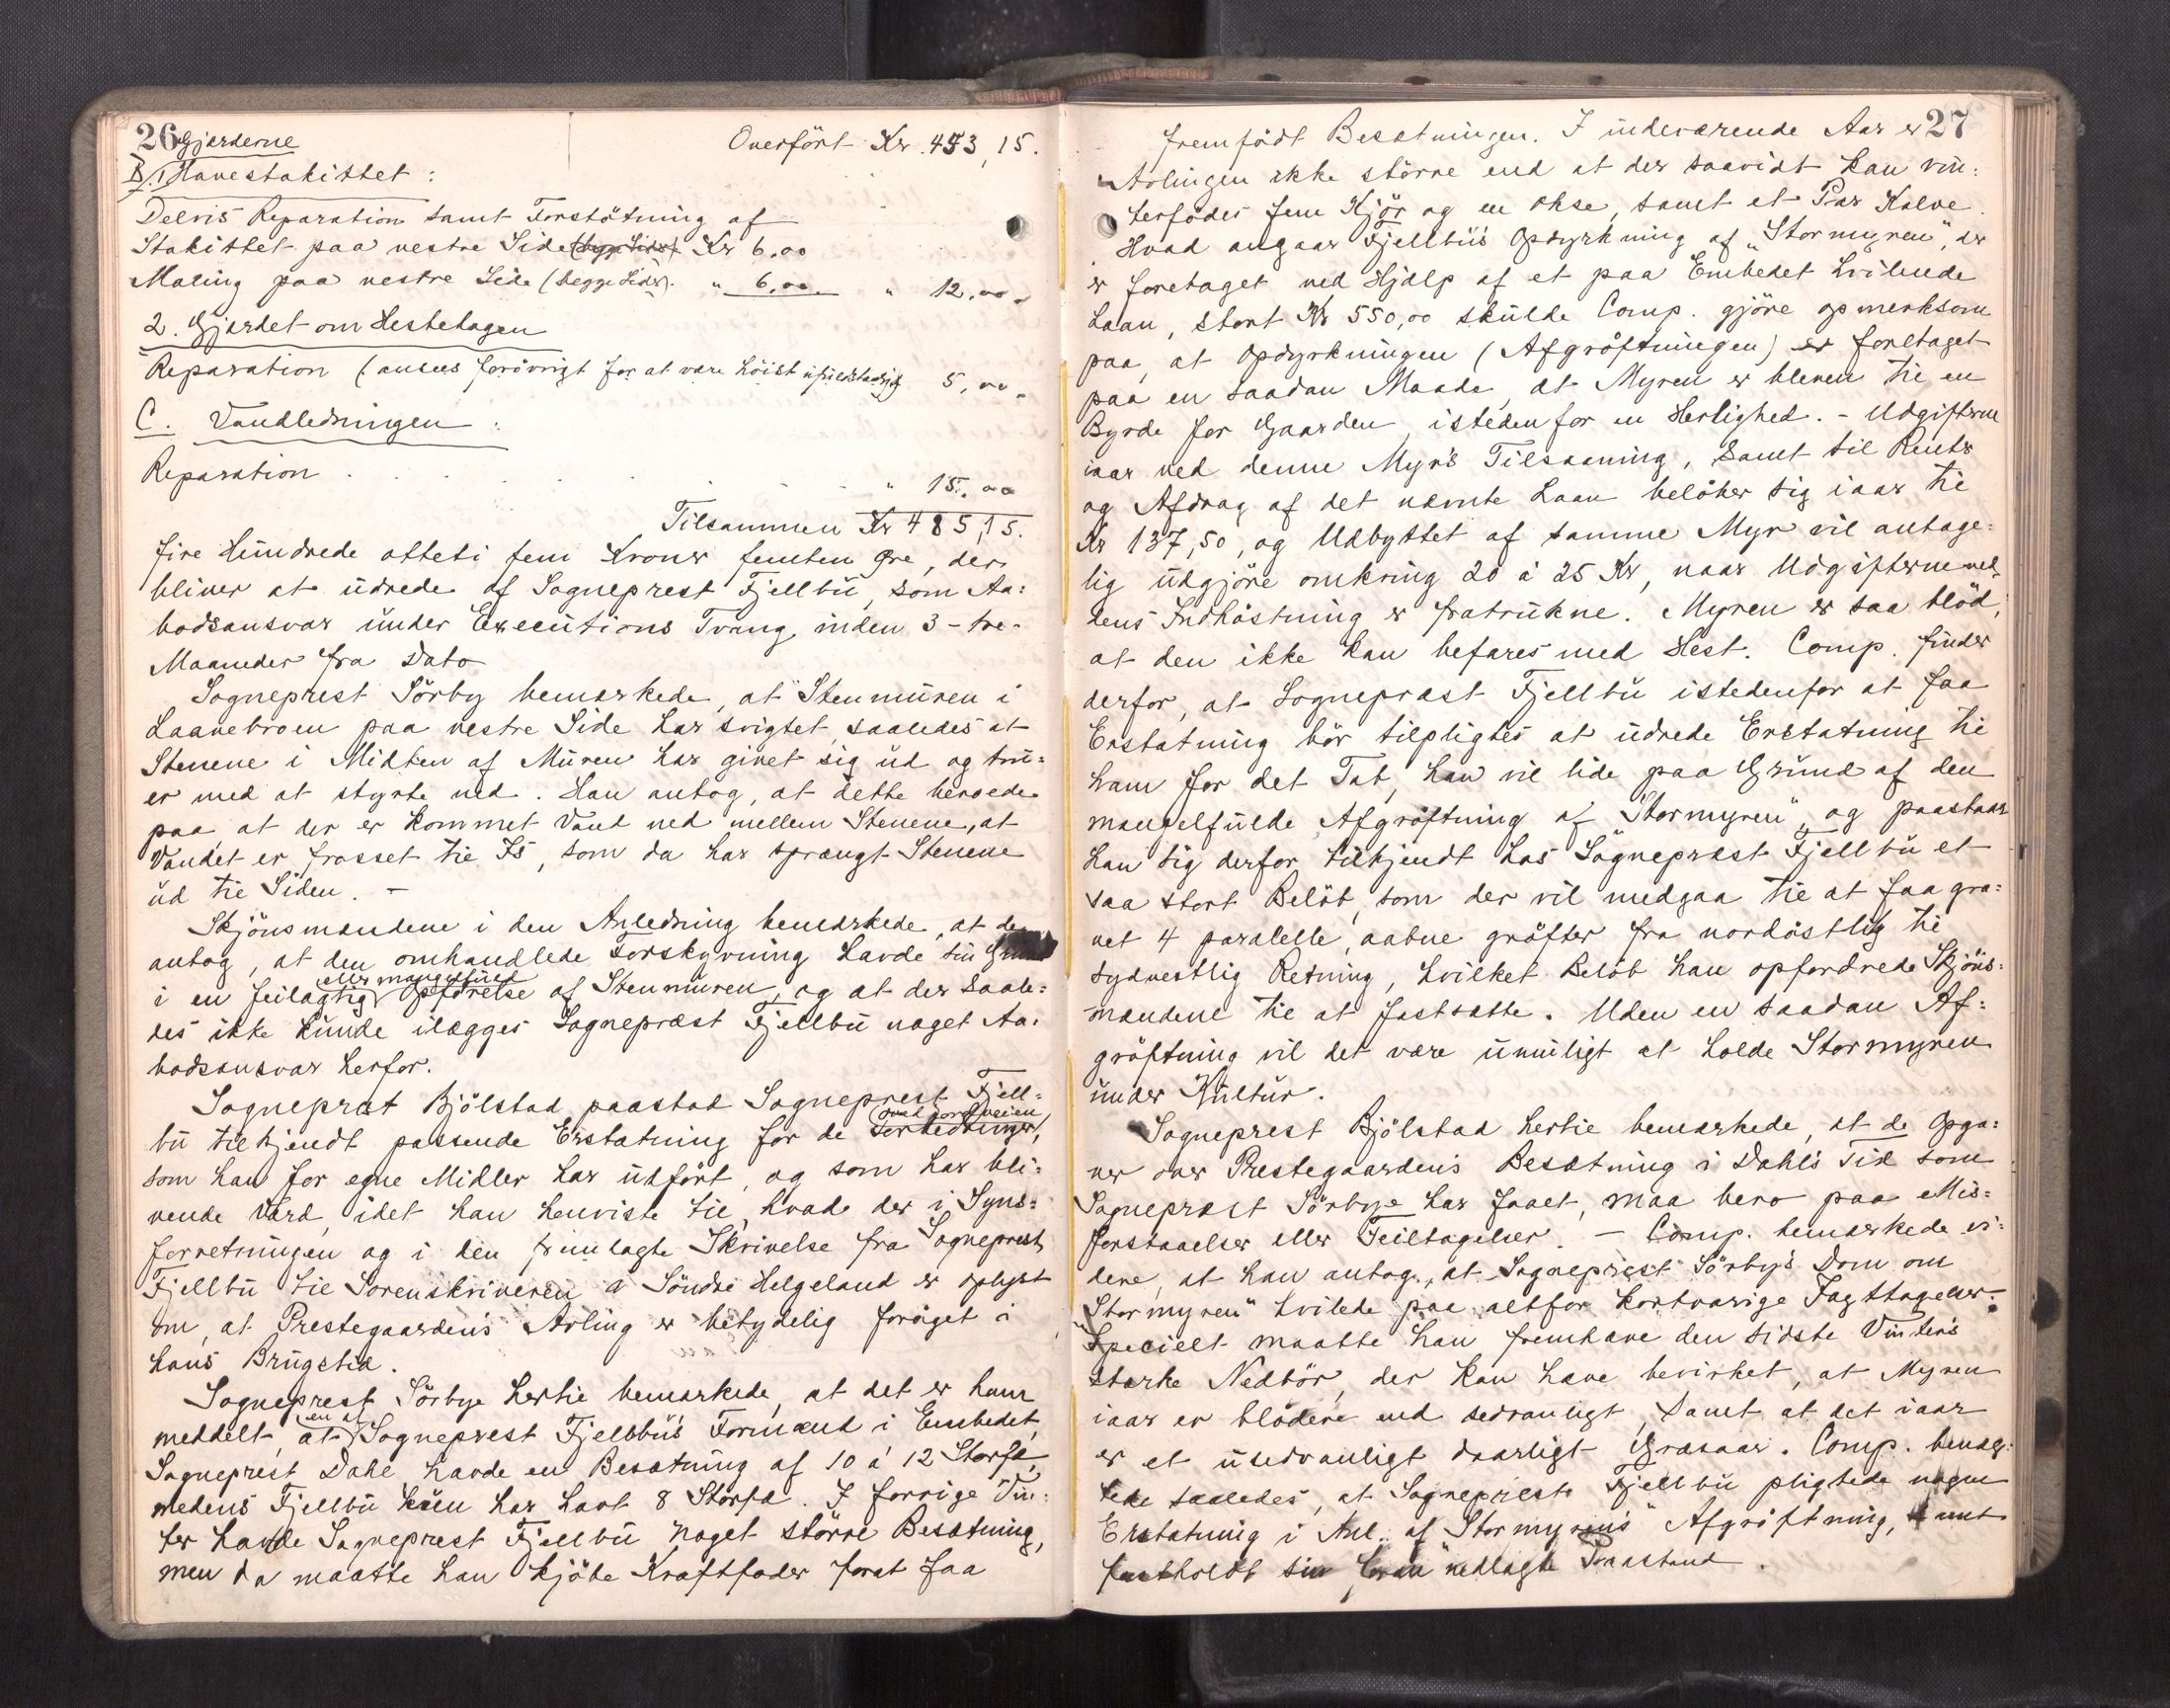 26 Gjærderne
Overfört Kr. 453,15.
B. 1 Havestakittet:
Delvis Reparation samt Forstötning af
Stakittet paa vestre Side (begge Sider) Kr 6,00
Maling paa vestre Side (begge Sider). " 6,00. " 12,00.
2. Gjærdet om Hestehagen
Reparation (ansees forövrigt for at være höist ufuldstædig) 5,00.
C. Vandledningen:
Reparation . . . . . " 15,00
Tilsammen Kr 485,15.
fire Hundrede otteti fem Kroner femten Øre, der
bliver at udrede af Sogneprest Fjellbu, som Aa=
bodsansvar under Executions Tvang inden 3-tre-
Maaneder fra Dato
Sogneprest Sörby bemærkede, at Stenmuren i
Laavebroen paa vestre Side har svigtet, saaledes at
Stenene i Midten af Muren har givet sig ud og tru=
er med at styrte ned. Han antog, at dette beroede
paa, at der er kommet Vand ned mellem Stenene, at
Vandet er frosset til Is, som da har sprængt Stenene
ud til Siden. -
Skjönsmændene i den Anledning bemærkede, at de
antog, at den omhandlede Forskyvning havde sin Grund
i en feilagtig eller mangelfuld Opförelse af Stenmuren, og at der saale=
des ikke kunde ilægges Sogneprest Fjellbu noget Aa=
bodsansvar herfor.
Sogneprest Bjölstad paastod Sogneprest Fjell=
bu tilkjendt passende Erstatning for de Forbedringer,
som han for egne Midler har udfört, og som har bli=
vende Værd, idet han henviste til, hvad der i Syns=
forretningen og i den fremlagte Skrivelse fra Sogneprest
Fjellbu til Sorenskriveren i Söndre Helgeland er oplyst
om, at Prestegaardens Avling er betydelig foröget i
hans Brugstid.
Sogneprest Sörbye hertil bemærkede, at det er ham
meddelt, at en af Sogneprest Fjellbu's Formænd i Embedet,
Sogneprest Dahl havde en Besætning af 10 à 12 Storfæ,
medens Fjellbu kun har havt 8 Storfæ. I forrige Vin=
ter havde Sogneprest Fjellbu noget större Besætning,
men da maatte han kjöbe Kraftfoder forat faa
27
fremfödt Besætningen. I indeværende Aar er
Avlingen ikke större end at der saavidt kan vin=
terfödes fem Kjör og en Okse, samt et Par Kalve.
Hvad angaar Fjellbu's Opdyrkning af "Stormyren", der
er foretaget ved Hjælp af et paa Embedet hvilende
Laan, stort Kr 550,00 skulde Comp. gjöre opmerksom
paa, at Opdyrkningen (Afgröftningen) er foretaget
paa en saadan Maade, at Myren er bleven til en
Byrde for Gaarden, istedenfor en Herlighed. - Udgifterne
iaar ved denne Myr's Tilsaaning, samt til Renter
og Afdrag af det nævnte Laan belöber sig iaar til
Kr 137,50, og Udbyttet af samme Myr vil antage=
lig udgjöre omkring 20 à 25 Kr, naar Udgifterne ved
dens Indhöstning er fratrukne. Myren er saa blöd,
at den ikke kan befares med Hest. Comp. finder
derfor, at Sogneprest Fjellbu istedenfor at faa
Erstatning bör tilpligtes at udrede Erstatning til
ham for det Tab, han vil lide paa Grund af den
mangelfulde Afgröftning af "Stormyren", og paastaar
han sig derfor tilkjendt hos Sogneprest Fjellbu et
saa stort Belöb, som der vil medgaa til at faa gra=
vet 4 paralelle, aabne gröfter fra nordöstlig til
sydvestlig Retning, hvilket Belöb han opfordrede Skjöns=
mændene til at fastsætte. Uden en saadan Af=
gröftning vil det være umuligt at holde Stormyren
under Kultur.
Sogneprest Bjölstad hertil bemærkede, at de Opga=
ver over Prestegaardens Besætning i Dahl's Tid som
Sogneprest Sörbye har faaet, maa bero paa Mis=
forstaaelser eller Feiltagelser. - Comp. bemærkede vi=
dere, at han antog, at Sogneprest Sörby's Dom om
"Stormyren" hvilede paa altfor kortvarige Iagttagelser.-
Specielt maatte han fremhæve den sidste Vinters
stærke Nedbör, der kan have bevirket, at Myren
iaar er blödere end sedvanligt, samt at det iaar
er et usedvanligt daarligt Græsaar. Comp. benæg=
tede saaledes, at Sogneprest Fjellbu pligtede nogen
Erstatning i Anl. af Stormyrens Afgröftning, samt
fastholdt sin foran nedlagte Paastand.